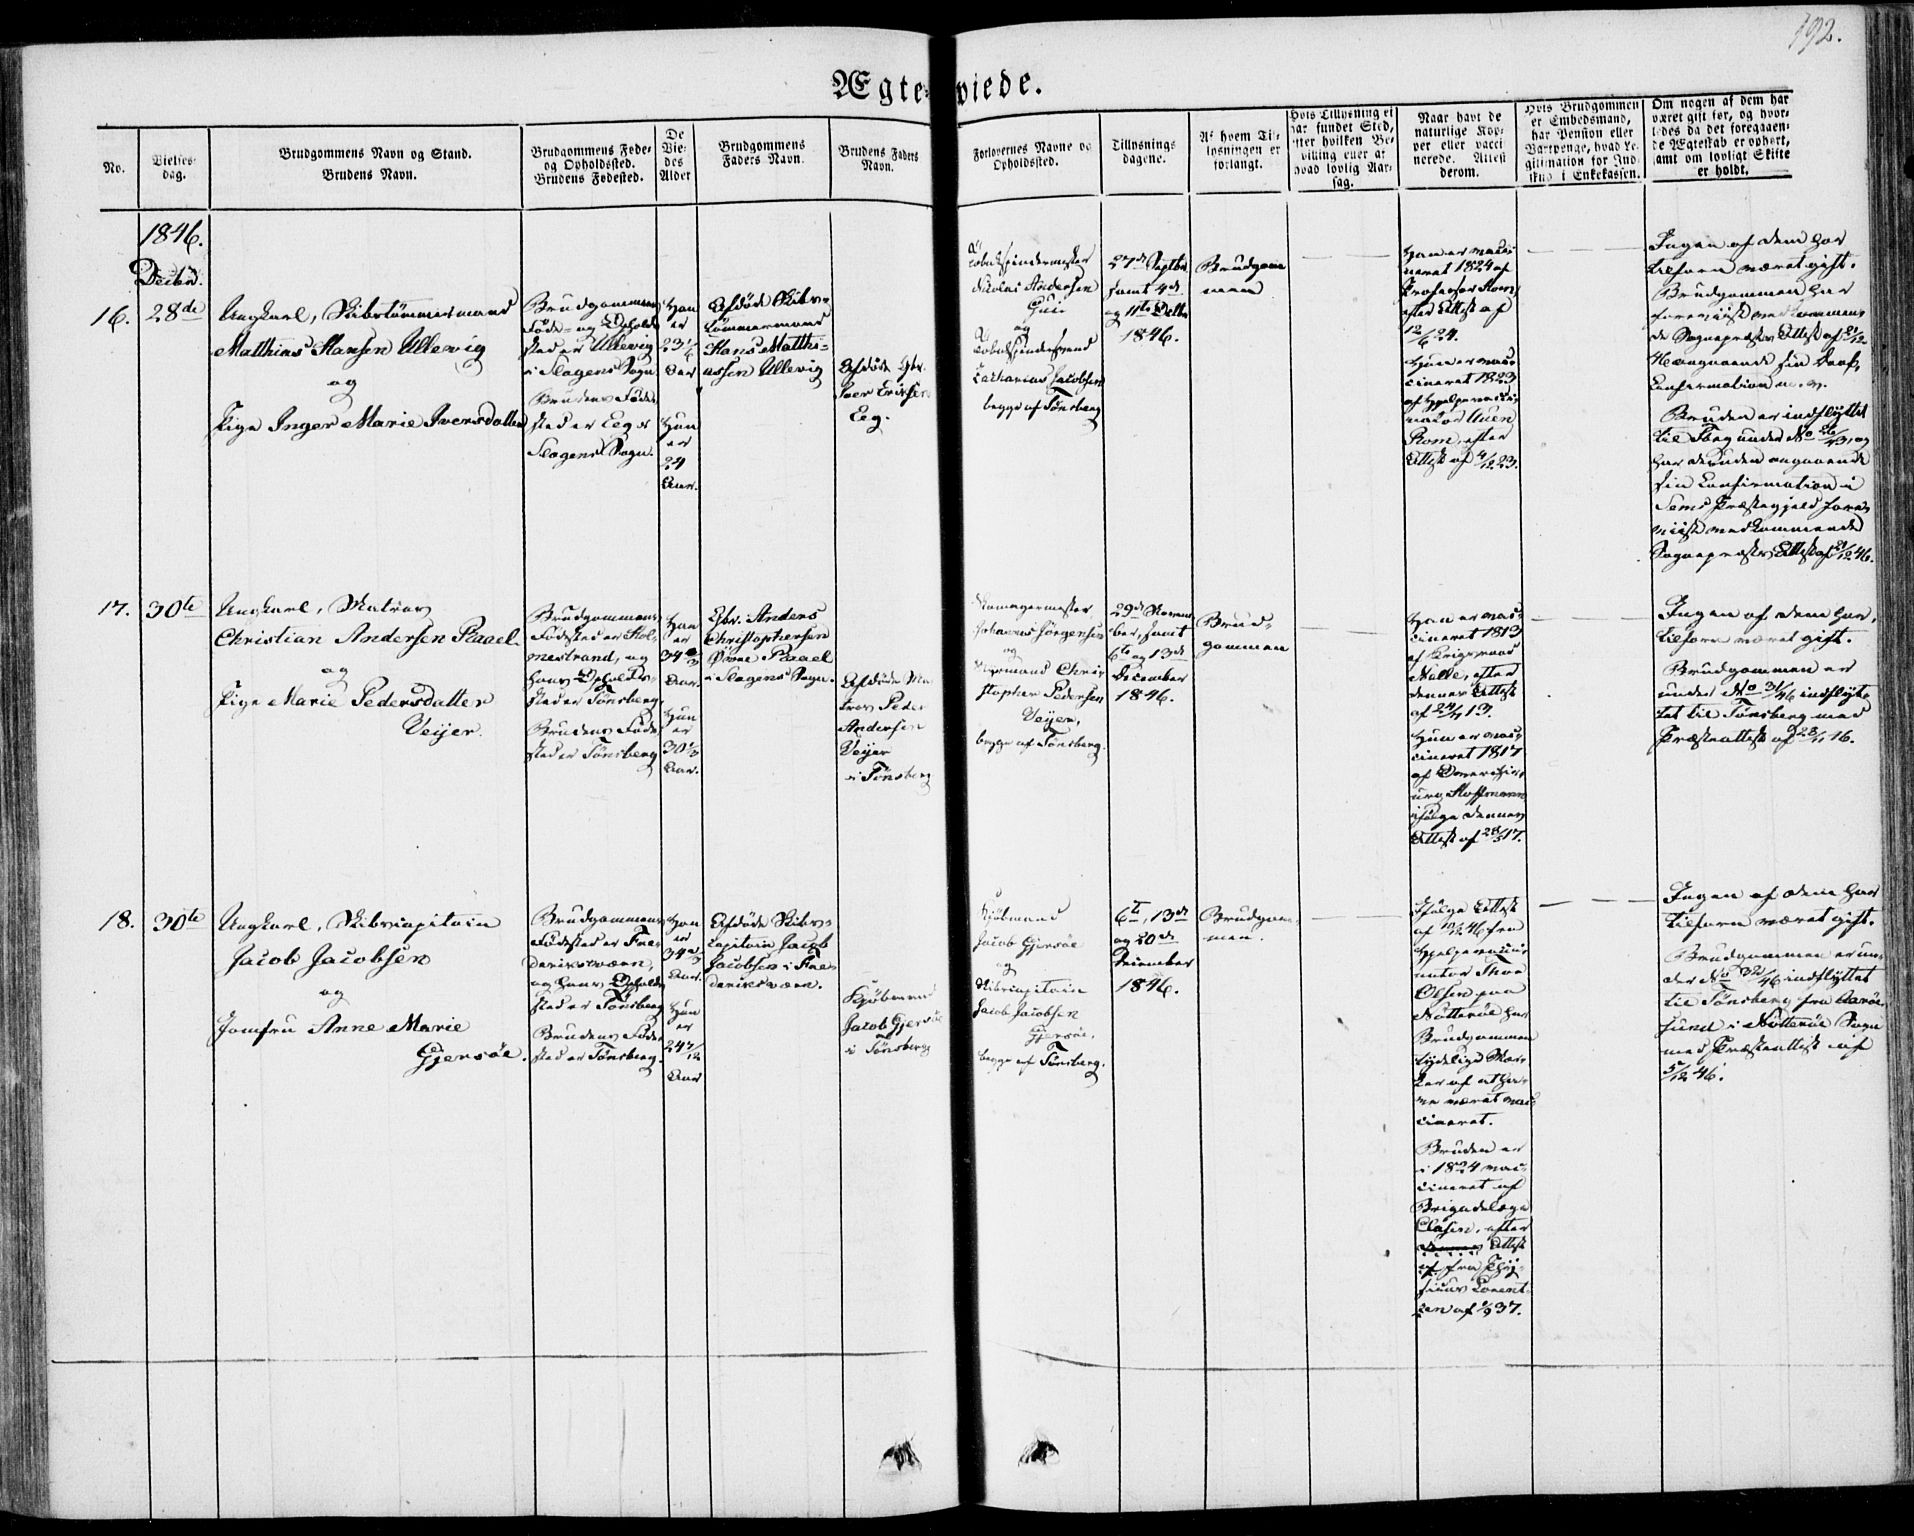 192.
Ægteviede.
No.
Vielses-
dag.
Brudgommens Navn og Stand.
Brudens Navn.
Brudgommens Føde-
og Opholdssted.
Brudens Fødested.
De
Vie-
des
Alder
Brudgommens
Faders Navn.
Brudens Faders
Navn.
Forlovernes Navne og
Opholdssted.
Tillysnings
dagene.
Af hvem Til-
lysningen er
forlangt.
Hvis Tillysning ei
har fundet Sted,
efter hvilken Be-
villing eller af
hvad lovlig Aar-
sag.
Naar havt de
naturlige Kop-
per eller vacci-
nerede. Attest
derom.
Hvis Brudgommen
er Embedsmand,
har Pension eller
Vartpenge, hvad Le-
gitimation for Ind-
skud i Enkekassen.
Om nogen af dem har
været gift før, og hvor-
ledes da det foregaaen-
de Ægteskab er ophørt,
samt om lovligt Skifte
er holdt.
1846.
Decbr.
16.
28de
Ungkarl, Skibstømmermand
Matthias Hansen Ullevig
og
Pige Inger Marie Iversdatter
Brudgommens
Føde- og Opholds-
sted er Ullevig
i Slagens Sogn
Brudens Føde-
sted er Eeg i
Slagens Sogn.
Han
er
23 1/6
Aar
Hun
er
24
Aar.
Afdøde Skibs-
tømmermand
Hans Matthi-
assen Ullevig
Afdøde Gbr.
Iver Eriksen
Eeg.
Tobakspindermester
Nicolai Andersen
og
Tobakspindersvend
Zacharias Jacobsen
begge af Tønsberg
27de Septbr
samt 4de
og 11te Octbr
1846.
Brudgom-
men
Han er vacci-
neret 1824 af
Professor
efter Attest af
12/6 24.
Hun er vac-
cineret 1823
af Hjelpevacci-
nateur
efter
Attest af 4/12 23.
Ingen af dem har
tilforn været gift.
Brudgommen har
foreviist vedkommen-
de Sognepræsts Attest af 21/12
46 angaaende sin Daab,
Confirmation m. v.
Bruden er indflyttet
til
under No 26/43, og
har desuden angaaende
sin Confirmation i
Sems Præstegjeld fore-
viist vedkommende
Sognepræsts Attest af 21/12 46.
17.
30te
Ungkarl, Matros
Christian Andersen Raael
og
Pige Marie Pedersdatter
Veijer.
Brudgommens
Fødested er Hol-
mestrand, og
hans Opholds-
sted er Tønsberg,
Brudens Føde-
sted er Tønsberg
Han
er
34 2/3
Aar.
Hun
er
30 1/3
Aar.
Gbr. Anders
Christophersen
Øvre Raael
i Slagens Sogn.
Afdøde Ma-
tros Peder
Andersen
Veijer
i Tønsberg
Johannes Jørgensen
og
Styrmand Chri-
stopher Pedersen
Veijer,
begge af Tønsberg.
29de Novem-
ber, samt
6te og 13de
December
1846.
Brud-
gommen
Han er vac-
cineret 1813
af Krigsraad
Nulle, efter
dennes Attest
af 24/7 13.
Hun er vac-
cineret 1817
af Overchir-
urg Hoffmann
ifølge dennes
Attest af 28/5 17.
Ingen af dem har
tilforn været gift.
Brudgommen er
under No 31/46 indflyt-
tet til Tønsberg med
Præsteattest af 28/11 46.
18.
30te
Ungkarl, Skibscapitain
Jacob Jacobsen
og
Jomfru Anne Marie
Gjersøe.
Brudgommens
Fødested er Fre-
deriksværn,
og hans Opholds-
sted er Tønsberg
Brudens Føde-
sted er Tønsberg.
Han
er
34 2/3
Aar.
Hun
er
24 7/12
Aar
Afdøde Skibs-
capitain Jacob
Jacobsen i Fre-
deriksværn.
Kjøbmand
Jacob Gjersøe
i Tønsberg
Kjøbmand
Jacob Gjersøe
og
Skibscapitain
Jacob Jacobsen
Gjersøe,
begge af Tønsberg.
6te, 13de
og 20de
December
1846.
Brudgom-
men.
Ifølge Attest
af 10/12 46 fra
Hjelpevacci-
nateur Thor
Olsen paa
Nøtterøe har
Brudgommen
tydelige Mær-
ker af at ha-
ve været vac-
cineret.
Bruden er
i 1824 vac-
cineret af
Brigadelæge
Clasen, efter
dennes Attest
af fra Phy-
sicus Lorent-
zen af 1/9 37.
Ingen af dem har
tilforn været gift.
Brudgommen er un-
der No 32/46 indflyttet
til Tønsberg fra Aarøe-
sund i Nøtterøe Sogn
med Præsteattest af
5/12 46.